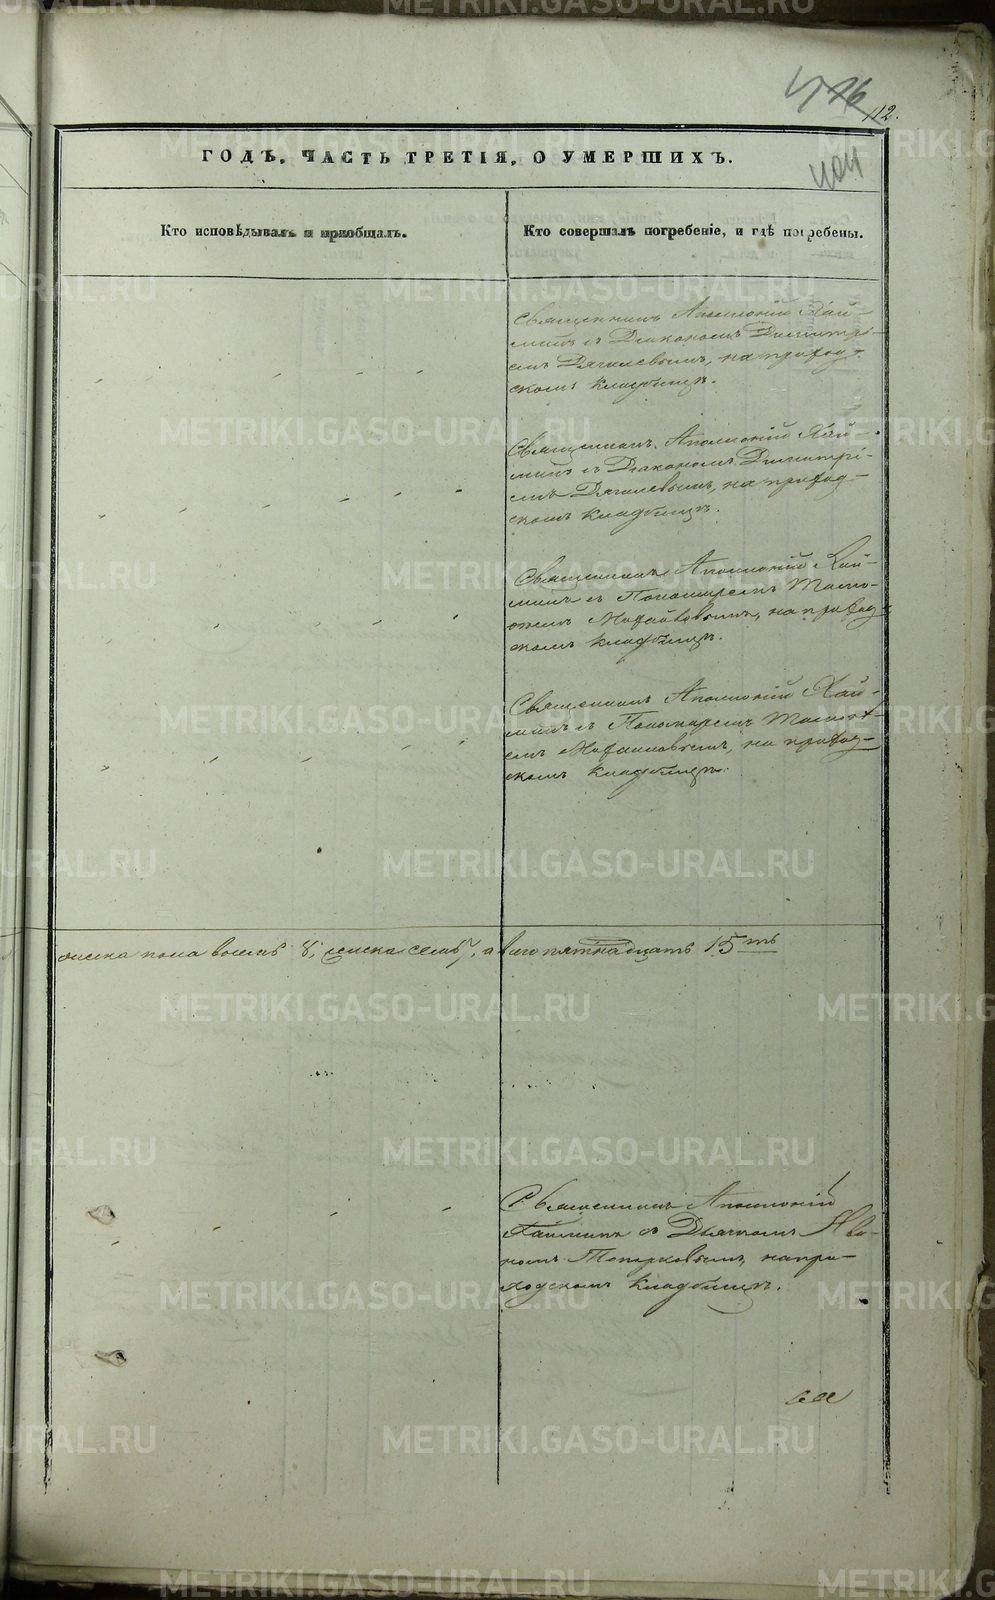 112.
404
ГОДЪ, ЧАСТЬ ТРЕТІЯ, О УМЕРШИХЪ.
Кто исповѣдывалъ и пріобщалъ.
Кто совершалъ погребеніе, и гдѣ погребены.
Священникъ Аполлоній Хай-
минъ съ Діакономъ Димитрі-
емъ Дягилевымъ, на приход-
скомъ кладбищѣ.
Священникъ Аполлоній Хай-
минъ съ Діакономъ Димитрі-
емъ Дягилевымъ, на приход-
скомъ кладбищѣ.
Священникъ Аполлоній Хай-
минъ съ Пономаремъ
на приход-
скомъ кладбищѣ.
Священникъ Аполлоній Хай-
минъ съ Пономаремъ
емъ на приход-
скомъ кладбищѣ.
пола восемь 8, женска семь 7, а всего пятнадцать 15ть
Священникъ Аполлоній
Хайминъ съ Дьячкомъ Ива-
номъ Топорковымъ, на при-
ходскомъ кладбищѣ.
METRIKI.GASO-URAL.RU